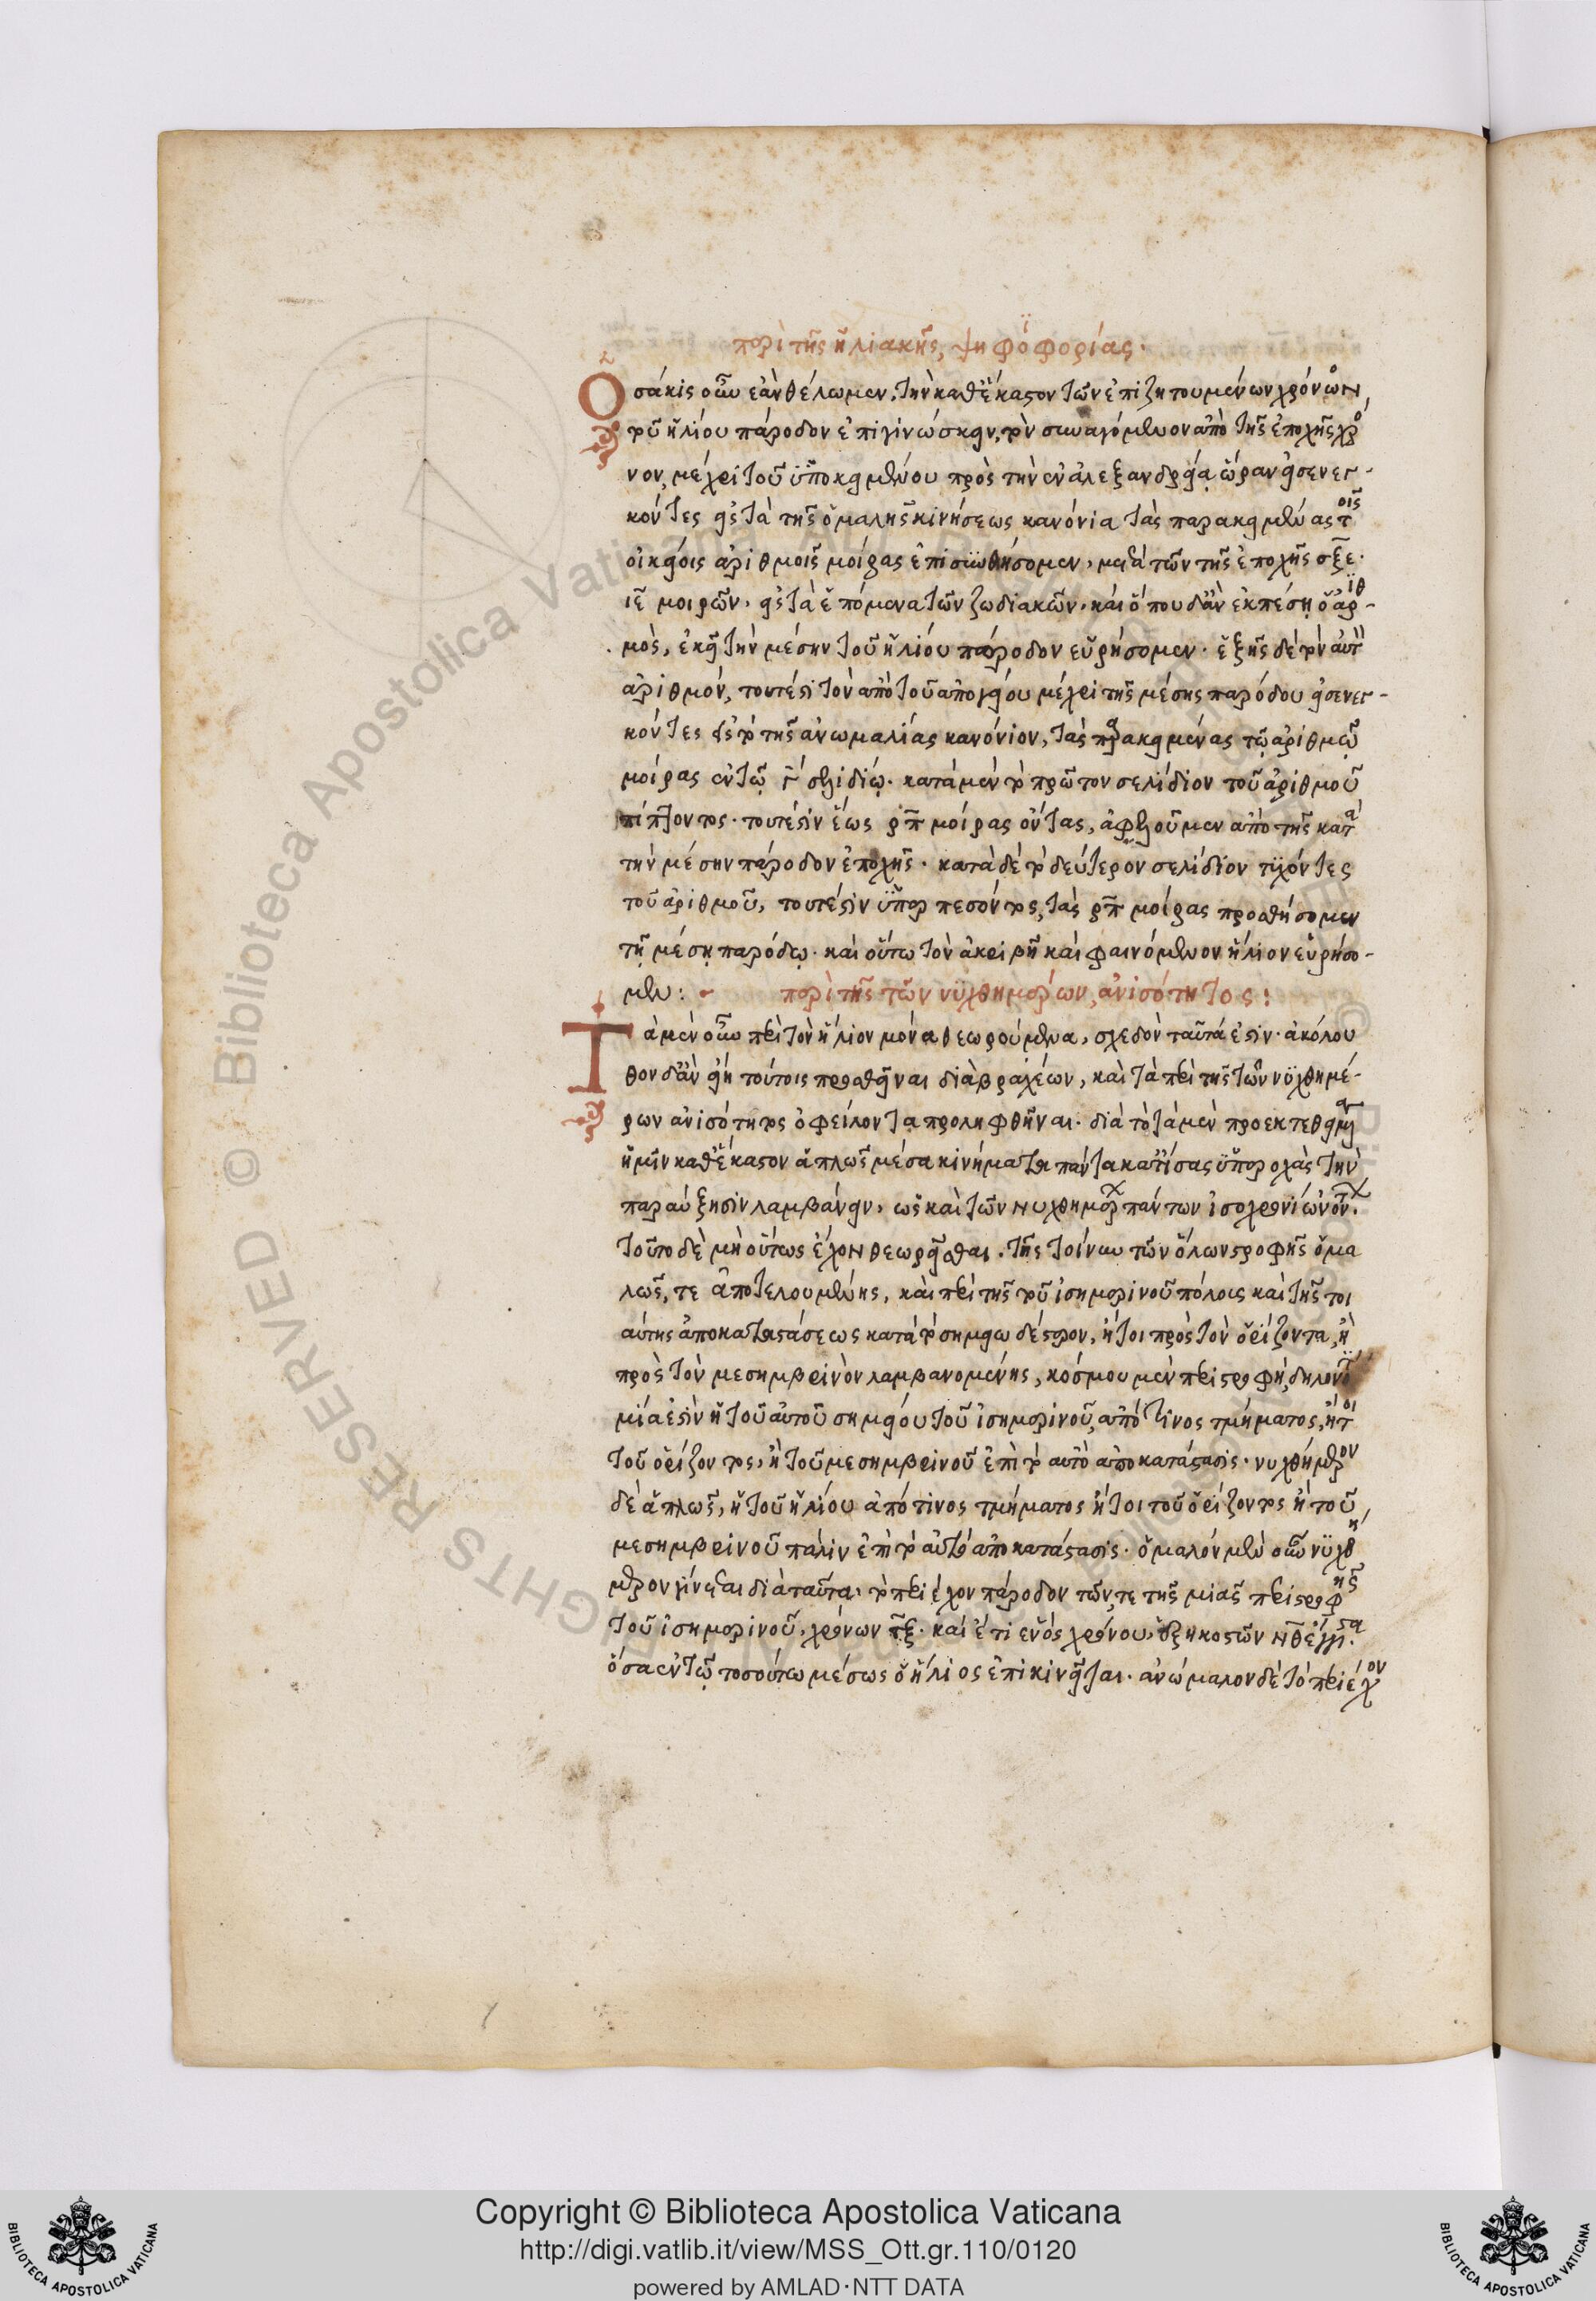 περὶ τῆς ἡλιακῆς ψηφοφορίας.
Ὁσάκις οὖν ἐὰν θέλωμεν τὴν καθ' ἕκαστον τῶν ἐπιζητουμένων χρόνων,
τοῦ ἡλίου πάροδον ἐπιγινώσκειν, τὸν συναγόμενον ἀπὸ τῆς ἐποχῆς χρό
νον, μέχρι τοῦ ὑποκειμένου πρὸς τὴν ἐν ἀλεξανδρείᾳ ὥραν εἰσενεγ-
κόντες εἰς τὰ τῆς ὁμαλῆς κινήσεως κανόνια τὰς παρακειμένας τοῖς
οἰκείοις ἀριθμοῖς μοίρας ἐπισυνθήσομεν, μετὰ τῶν τῆς ἐποχῆς σξε.
ιε μοιρῶν. εἰς τὰ ἑπόμενα τῶν ζωδιακῶν. καὶ ὅπου δἂν ἐκπέσῃ ὁ ἀριθ-
μὸς, ἐκεῖ τὴν μέσην τοῦ ἡλίου πάροδον εὑρήσομεν. ἑξῆς δὲ τὸν αὐτὸν
ἀριθμόν, τουτέστι τὸν ἀπὸ τοῦ ἀπογείου μέχρι τῆς μέσης παρόδου εἰσενεγ-
κόντες εἰς τὸ τῆς ἀνωμαλίας κανόνιον, τὰς παρακειμένας τῷ ἀριθμῷ
μοίρας ἐν τῷ γ σελιδίῳ. κατὰ μὲν τὸ πρῶτον σελίδιον τοῦ ἀριθμοῦ
πίπτοντος. τουτέστιν ἕως ρπ μοίρας ὄντας, ἀφελοῦμεν ἀπὸ τῆς κατὰ
τὴν μέσην πάροδον ἐποχῆς. κατὰ δὲ τὸ δεύτερον σελίδιον τυχόντες
τοῦ ἀριθμοῦ, τουτέστιν ὑπερπεσόντος, τὰς ρπ μοίρας προσθήσομεν
τῇ μέσῃ παρόδῳ. καὶ οὕτω τὸν ἀκριβῆ καὶ φαινόμενον ἥλιον εὑρήσο-
μεν: - περὶ τῆς τῶν νυχθημέρων, ἀνισότητος:
Τὰ μὲν οὖν περὶ τὸν ἥλιον μόνα θεωρούμενα, σχεδὸν ταῦτά ἐστιν. ἀκόλου
θον δἂν εἴη τούτοις προσθεῖναι διὰ βραχέων, καὶ τὰ περὶ τῆς τῶν νυχθημέ-
ρων ἀνισότητος ὀφείλοντα προληφθῆναι. διὰ τὸ τὰ μὲν προεκτεθειμένα
ἡμῖν καθ' ἕκαστον ἁπλῶς μέσα κινήματα πάντα κατ' ἴσας ὑπεροχὰς τὴν
παραύξησιν λαμβάνειν, ὡς καὶ τῶν νυχθημέρων πάντων ἰσοχρονίων ὄντων.
τοῦτο δὲ μὴ οὕτως ἔχον θεωρεῖσθαι. τῆς τοίνυν τῶν ὅλων στροφῆς ὁμα
λῶς, τε ἀποτελουμένης, καὶ περὶ τῆς τοῦ ἰσημερινοῦ πόλους καὶ τῆς τοι
αύτης ἀποκαταστάσεως κατὰ τὸ σημειωδέστερον, ἤτοι πρὸς τὸν ὁρίζοντα, ἢ
πρὸς τὸν μεσημβρινὸν λαμβανομένης, κόσμου μὲν περιστροφή, δηλονότι
μία ἐστὶν ἡ τοῦ αὐτοῦ σημείου τοῦ ἰσημερινοῦ, ἀπό τινος τμήματος, ἤτοι
τοῦ ὁρίζοντος, ἢ τοῦ μεσημβρινοῦ ἐπὶ τὸ αὐτὸ ἀποκατάστασις. νυχθήμερον
δὲ ἁπλῶς, ἡ τοῦ ἡλίου ἀπό τινος τμήματος ἤτοι τοῦ ὁρίζοντος ἢ τοῦ
μεσημβρινοῦ πάλιν ἐπὶ τὸ αὐτὸ ἀποκατάστασις. ὁμαλὸν μὲν οὖν νυχθή
μερον γίνεται διὰ ταῦτα, τὸ περιέχον πάροδον τῶν, τε τῆς μιᾶς περιστροφῆς
τοῦ ἰσημερινοῦ, χρόνων τξ. καὶ ἔτι ἑνὸς χρόνου, ἑξηκοστῶν νθ ἔγγιστα.
ὅσα ἐν τῷ τοσούτῳ μέσως ὁ ἥλιος ἐπικινεῖται. ἀνώμαλον δὲ τὸ περιέχον
Copyright © Biblioteca Apostolica Vaticana
http://digi.vatlib.it/view/MSS_Ott.gr.110/0120
powered by AMLAD·NTT DATA